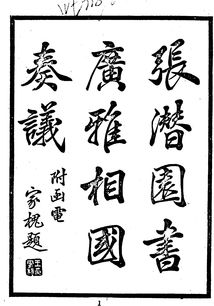 張潛園書
廣雅相國
奏議
附函電
家槐題